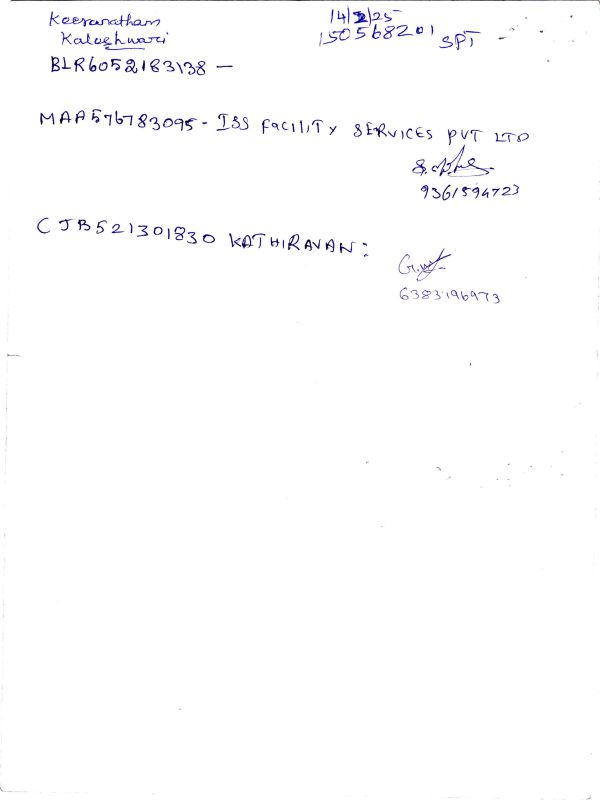 Keeranatham
14/2/25
Kaleshwari
150568201 SPT
BLR6052183138 -
MAA576783095 - ISS FaciliTy SERVICES PVT LTD
9361594723
CJB521301830 KATHIRAVAN:
6383196973